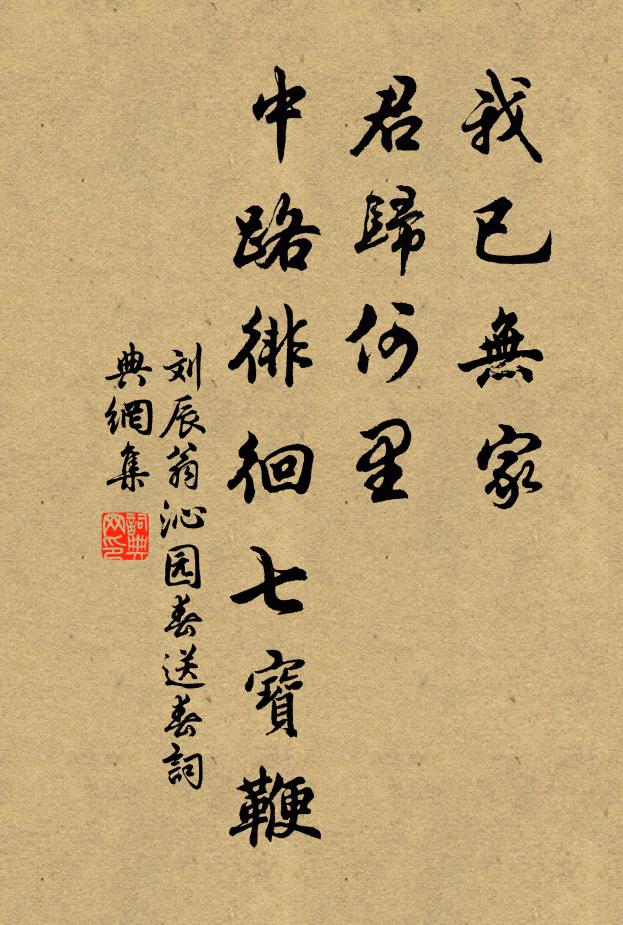 我已無家
君歸何里
中路徘徊七寶鞭
刘辰翁沁园春送春詞
典網集
詞典网印